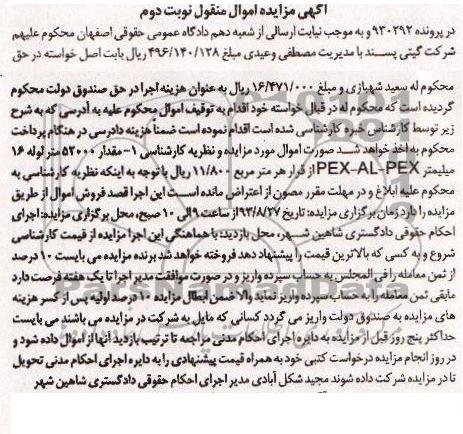 آگهی مزایده اموال منقول نوبت دوم
در پرونده ۹۳۰۲۹۲ و به موجب نیابت ارسالی از شعبه دهم دادگاه عمومی حقوقی اصفهان محکوم علیهم
شرکت گیتی پسند با مدیریت مصطفی وعیدی مبلغ ۴۹۶/۱۴۰/۱۲۸ ریال بابت اصل خواسته در حق
محکوم له سعید شهبازی و مبلغ ۱۶/۴۷۱/۰۰۰ ریال به عنوان هزینه اجرا در حق صندوق دولت محکوم
گردیده است که محکوم له در قبال خواسته خود اقدام به توقیف اموال محکوم علیه به آدرسی که به شرح
زیر توسط کارشناس خبره کارشناسی شده است اقدام نموده است ضمناً هزینه دادرسی در هنگام پرداخت
محکوم به اخذ خواهد شد صورت اموال مورد مزایده و نظریه کارشناسی ۱- مقدار ۵۲۰۰۰ متر لوله ۱۶
میلیمتر PEX-AL-PEX از قرار هر متر مربع ۱۱/۸۰۰ ریال با توجه به اینکه نظریه کارشناسی به
محکوم علیه ابلاغ و در مهلت مقرر مصون از اعتراض مانده است این اجرا قصد فروش اموال از طریق
مزایده را دارد زمان برگزاری مزایده: تاریخ ۹۳/۸/۲۷ از ساعت ۹ الی ۱۰ صبح، محل برگزاری مزایده: اجرای
احکام حقوقی دادگستری شاهین شهر، محل بازدید: با هماهنگی این اجرا مزایده از قیمت کارشناسی
شروع و به کسی که بالاترین قیمت را پیشنهاد دهد فروخته خواهد شد برنده مزایده می بایست ۱۰ درصد
از ثمن معامله را فی المجلس به حساب سپرده واریز و در صورت موافقت مدیر اجرا تا یک هفته فرصت دارد
مابقی ثمن معامله را به حساب سپرده واریز نماید والا ضمن ابطال مزایده ۱۰ درصد اولیه پس از کسر هزینه
های مزایده به صندوق دولت واریز می گردد کسانی که مایل به شرکت در مزایده می باشند می بایست
حداکثر پنج روز قبل از مزایده به دایره اجرای احکام مدنی مراجعه تا ترتیب بازدید آنها از اموال داده شود و
در روز انجام مزایده درخواست کتبی خود به همراه قیمت پیشنهادی را به دایره اجرای احکام مدنی تحویل
تا در مزایده شرکت داده شوند مجید شکل آبادی مدیر اجرای احکام حقوقی دادگستری شاهین شهر